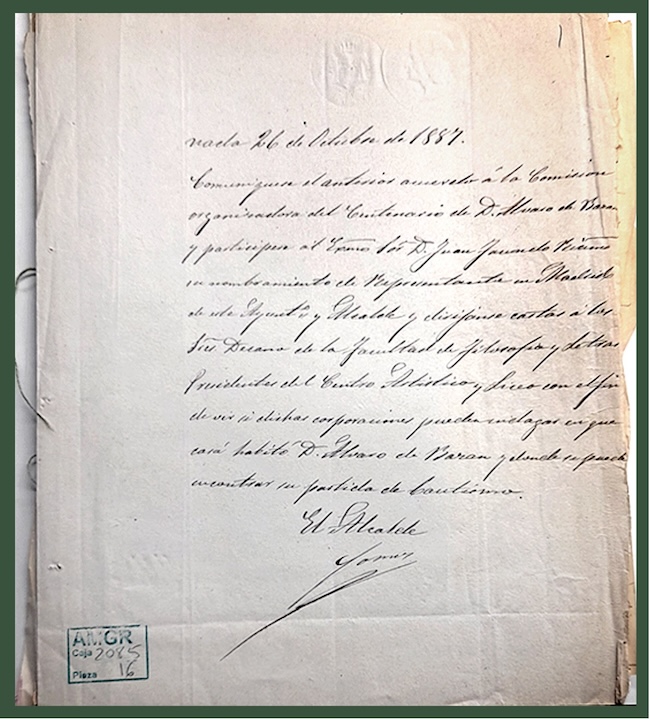 1
nada 26 de Octubre de 1887.
Comuniquese el anterior acuerdo á la Comision
organizadora del Centenario de D. Alvaro de Bazan
y participese al Exmo Sor D. Juan Facundo Riaño
su nombramiento de Representante en Madrid
de este Ayuntº y Alcalde y dirijanse cartas á los
Sres Decano de la Facultad de Filosofia y Letras
Presidentes del Centro Artistico y Liceo con el fin
de ver si dichas corporaciones pueden indagar en que
casa habitó D. Alvaro de Bazan y donde se puede
encontrar su partida de bautismo.
El Alcalde
AMGR
Caja 2085
Pieza 16